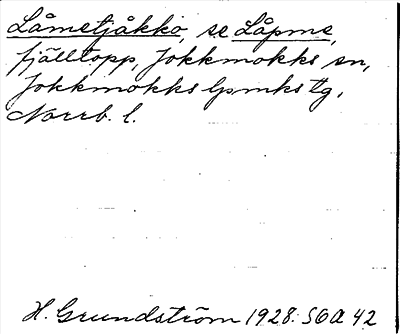 Låmetjåkko, se Låpme,
fjälltopp, Jokkmokks sn,
Jokkmokks lpmks tg,
Norrb. l.
H. Grundström 1928: SOA 42